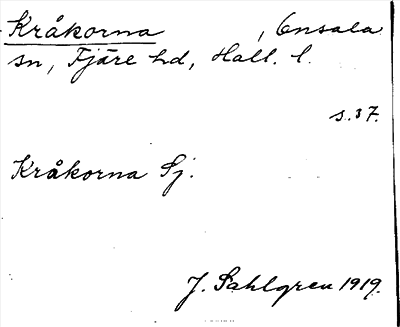 Kråkorna , Onsala
sn, Fjäre hd, Hall. l.
s. 37.
Kråkorna Sj.
J. Sahlgren 1919.